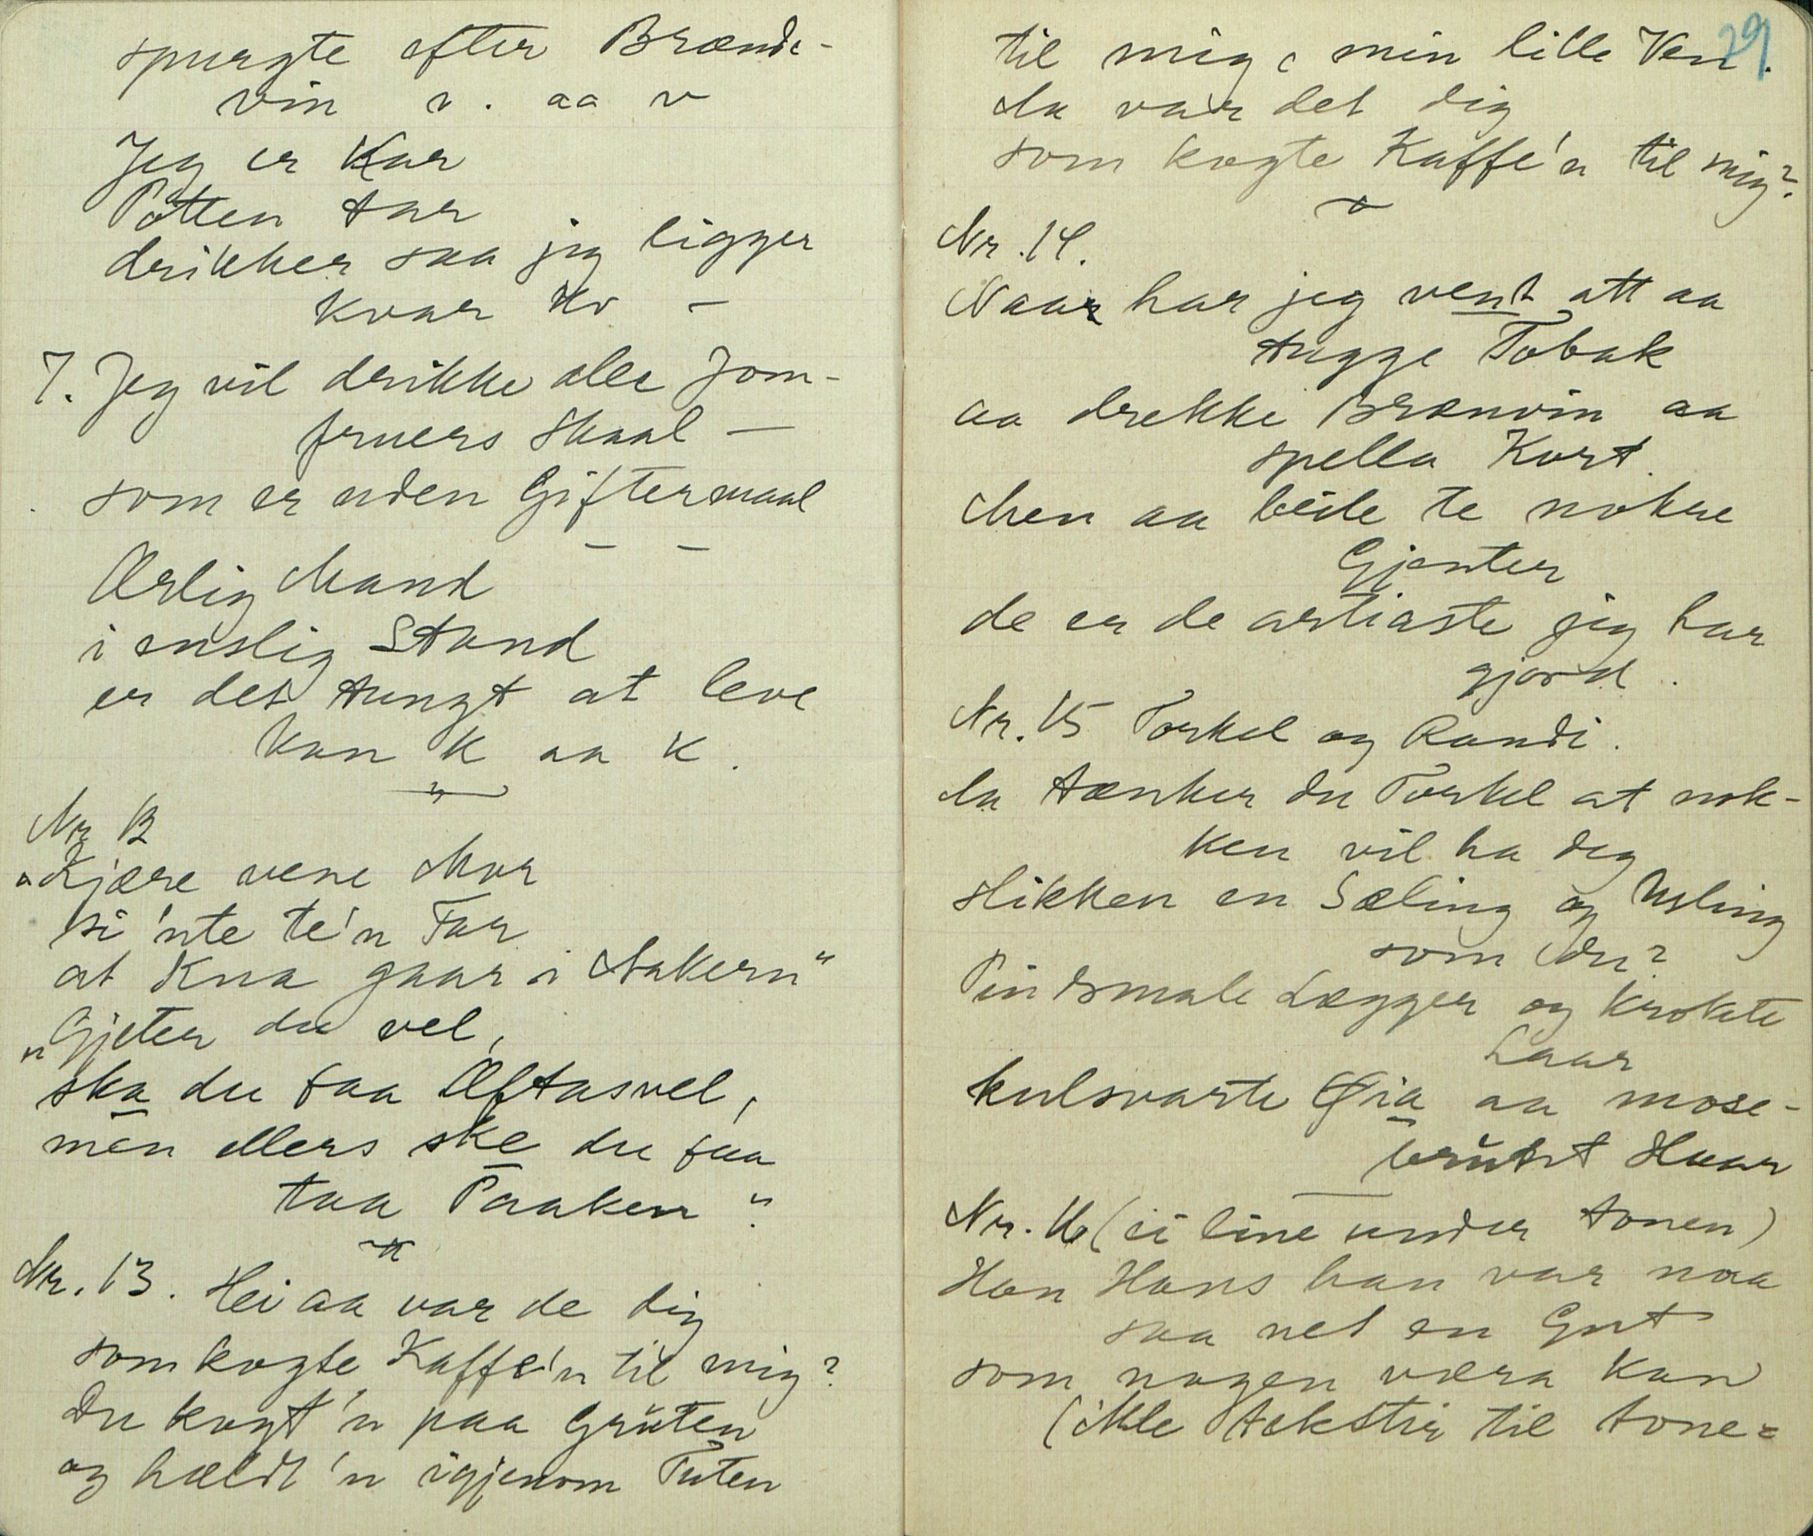 spurgte efter Brænde-
vin v. aa v
Jeg er Kar
Potten tar
drikker saa jeg ligger
kvar Kv –
7. Jeg vil drikke alle Jom-
fruers Skaal –
som er uden Giftermaal
– –
Ærlig Mand
i enslig Stand
er det tungt at leve
kan K aa K.
Nr 12
"Kjære vene Mor
si 'nte te'n Far
at Kua gaar i Aakern"
"Gjeter du vel,
ska du faa Æftasvel,
men ellers ske du faa
taa Paaken"
Nr. 13. Hei aa var de dig
som kogte Kaffe'n til mig?
Du kogt'n paa Gruten
og hældt'n igjenom Tuten
29
til mig, min lille Ven.
Aa var det dig
som kogte Kaffe'n til mig?
Nr. 14.
Naar har jeg vent att aa
tugge Tobak
aa drekke Brænvin aa
spella Kort.
Men aa beile te nokre
Gjenter
de er de artiaste jeg har
gjord.
Nr. 15 Torkel og Randi.
Aa tænker du Torkel at nok-
ken vil ha deg
slikken en Sæling og Usling
som du?
Pindsmale Lægger og krokete
Laar
kulsvarte Øia aa mose-
brunt Haar
Nr. 16 (ei line under tonen)
Han Hans han var naa
saa net en Gut
som nogen væra kan
(ikke tekstir til tone=